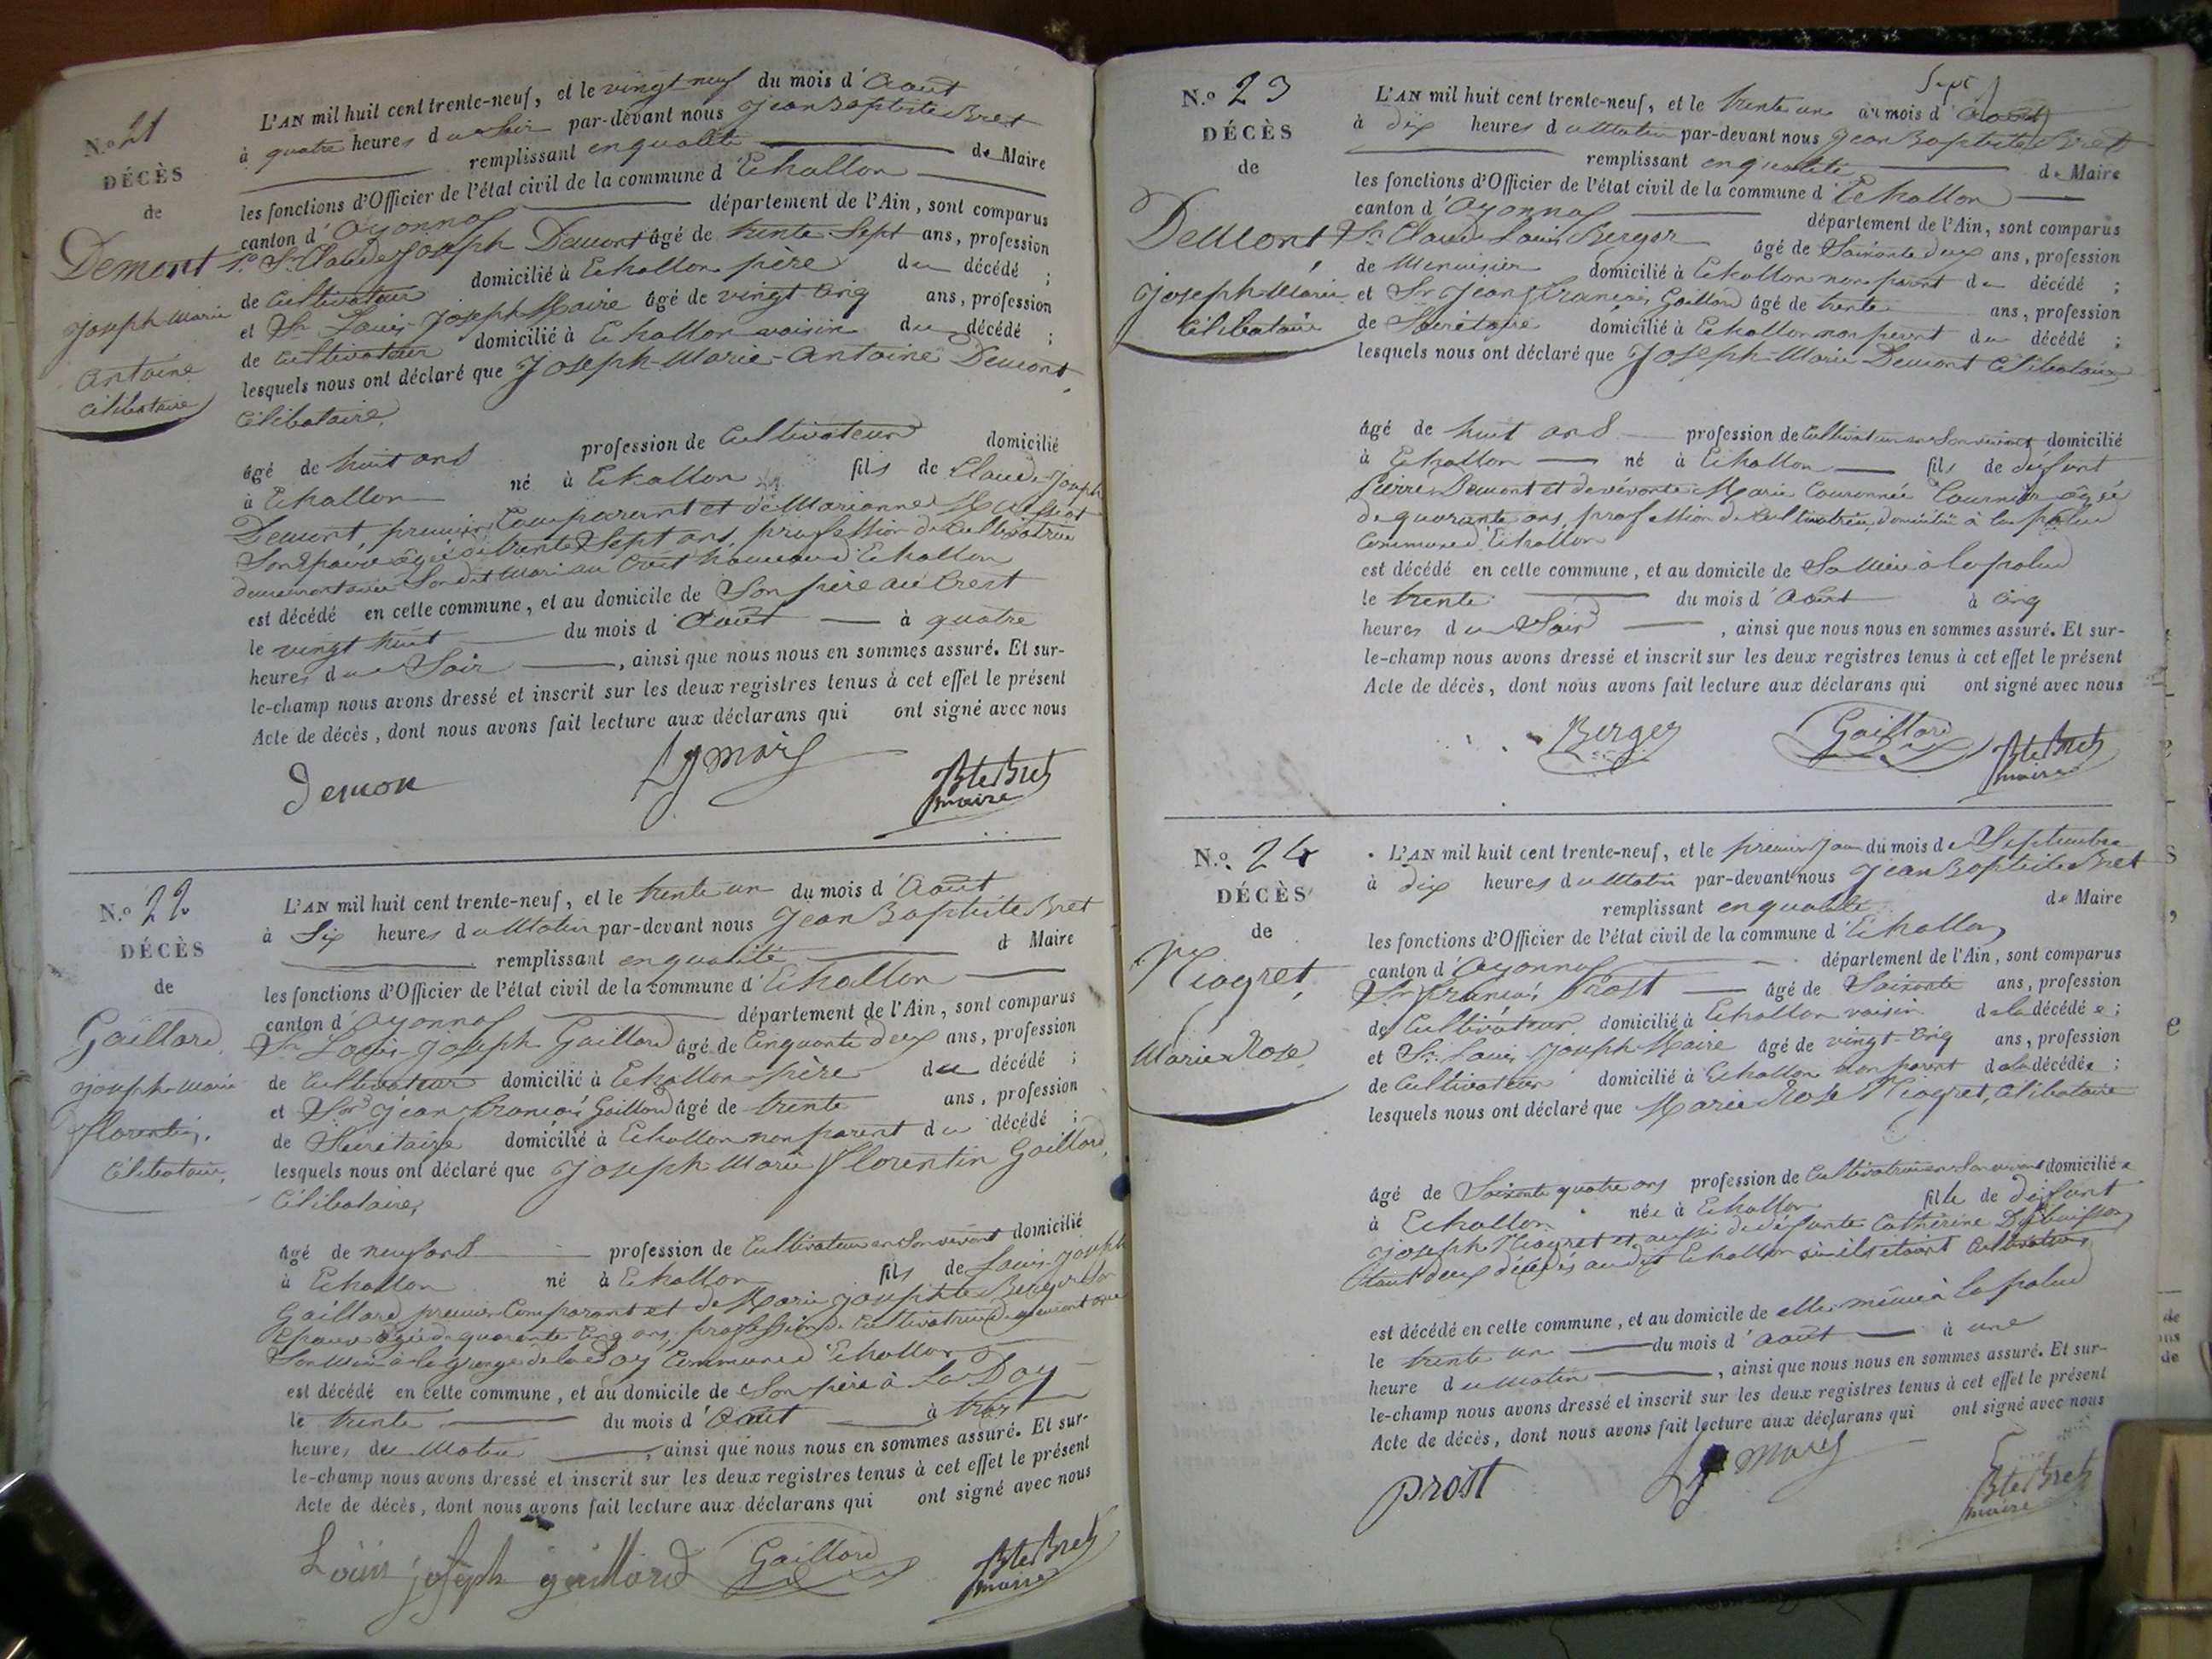 N.o 21
DÉCÈS
de
Demont
Joseph-Marie
Antoine
Célibataire
L'AN mil huit cent trente-neuf, et le vingt neuf du mois d'Août
à quatre heures du Soir par-devant nous Jean Baptiste Bret
remplissant en qualité de Maire
les fonctions d'Officier de l'état civil de la commune d'Echallon
canton d'Oyonnas département de l'Ain, sont comparus
1o Sr Claude Joseph Demont âgé de trente Sept ans, profession
de Cultivateur domicilié à Echallon père du décédé ;
et Sr Louis-Joseph Maire âgé de vingt-cinq ans, profession
de Cultivateur domicilié à Echallon voisin du décédé ;
lesquels nous ont déclaré que Joseph-Marie-Antoine Demont,
Célibataire,
âgé de huit ans profession de Cultivateur domicilié
à Echallon né à Echallon fils de Claude-Joseph
Demont, premier Comparant et de Marianne
Son Epouse âgée de trente Sept ans, profession de Cultivatrice
demeurant avec Son dit Mari au Crêt hameau d'Echallon
est décédé en cette commune, et au domicile de Son père au Crest
le vingt huit du mois d'Août à quatre
heures du Soir, ainsi que nous nous en sommes assuré. Et sur-
le-champ nous avons dressé et inscrit sur les deux registres tenus à cet effet le présent
Acte de décès, dont nous avons fait lecture aux déclarans qui ont signé avec nous
Demon
BteBret
maire
N.o 22
DÉCÈS
de
Gaillard,
Joseph-Marie
florentin,
Célibataire,
L'AN mil huit cent trente-neuf, et le trente un du mois d'Août
à Six heures du Matin par-devant nous Jean Baptiste Bret
remplissant en qualité d Maire
les fonctions d'Officier de l'état civil de la commune d'Echallon
canton d'Oyonnas département de l'Ain, sont comparus
Sr Louis-Joseph Gaillard âgé de Cinquante deux ans, profession
de Cultivateur domicilié à Echallon père du décédé ;
et Sr Jean François Gaillard âgé de trente ans, profession
de Secrétaire domicilié à Echallon non parent du décédé ;
lesquels nous ont déclaré que Joseph Marie florentin Gaillard,
Célibataire,
âgé de neuf ans profession de Cultivateur en Son vivant domicilié
à Echallon né à Echallon fils de Louis-Joseph
Gaillard premier Comparant et de Marie Josephte Berger Son
Epouse âgée de quarante Cinq ans, profession de Cultivatrice demeurant avec
Son Mari à la grange de la Doy Commune d'Echallon
est décédé en cette commune, et au domicile de Son père à La Doy
le trente du mois d'Août à trois
heures du Matin, ainsi que nous nous en sommes assuré. Et sur-
le-champ nous avons dressé et inscrit sur les deux registres tenus à cet effet le présent
Acte de décès, dont nous avons fait lecture aux déclarans qui ont signé avec nous
Louis joseph gaillard Gaillard BteBret
maire
N.o 23
DÉCÈS
de
Demont,
Joseph-Marie
Célibataire
Sept
L'AN mil huit cent trente-neuf, et le trente un du mois d'Août
à dix heures du Matin par-devant nous Jean Baptiste Bret
remplissant en qualité de Maire
les fonctions d'Officier de l'état civil de la commune d'Echallon
canton d'Oyonnas département de l'Ain, sont comparus
Sr Claude Louis Berger âgé de Soixante deux ans, profession
de Menuisier domicilié à Echallon non parent du décédé ;
et Sr Jean François Gaillard âgé de trente ans, profession
de Secrétaire domicilié à Echallon non parent du décédé ;
lesquels nous ont déclaré que Joseph-Marie Demont Célibataire
âgé de huit ans profession de Cultivateur en Son vivant domicilié
à Echallon né à Echallon fils de défunt
Pierre Demont et de vivante Marie Couronnée Tournier âgée
de quarante ans, profession de Cultivatrice domiciliée à la palud
Commune d'Echallon
est décédé en cette commune, et au domicile de Sa Mère à la palud
le trente du mois d'Août à Cinq
heures du Soir, ainsi que nous nous en sommes assuré. Et sur-
le-champ nous avons dressé et inscrit sur les deux registres tenus à cet effet le présent
Acte de décès, dont nous avons fait lecture aux déclarans qui ont signé avec nous
Berger Gaillard BteBret
maire
N.o 24
DÉCÈS
de
Niogret,
Marie Rose,
L'AN mil huit cent trente-neuf, et le premier Jour du mois de Septembre
à dix heures du Matin par-devant nous Jean Baptiste Bret
remplissant en qualité de Maire
les fonctions d'Officier de l'état civil de la commune d'Echallon
canton d'Oyonnas département de l'Ain, sont comparus
Sr François Prost âgé de Soixante ans, profession
de Cultivateur domicilié à Echallon voisin de la décédée ;
et Sr Louis Joseph Maire âgé de vingt-cinq ans, profession
de Cultivateur domicilié à Echallon non parent de la décédée ;
lesquels nous ont déclaré que Marie Rose Niogret, Célibataire
âgé de Soixante quatre ans profession de Cultivatrice en Son vivant domicilié e
à Echallon née à Echallon fille de défunt
Joseph Niogret et aussi de défunte Catherine
étant deux décédés au dit Echallon où ils étaient Cultivateurs,
est décédé en cette commune, et au domicile de elle même à la palud
le trente un du mois d'Août à une
heure du Matin, ainsi que nous nous en sommes assuré. Et sur-
le-champ nous avons dressé et inscrit sur les deux registres tenus à cet effet le présent
Acte de décès, dont nous avons fait lecture aux déclarans qui ont signé avec nous
prost BteBret
maire